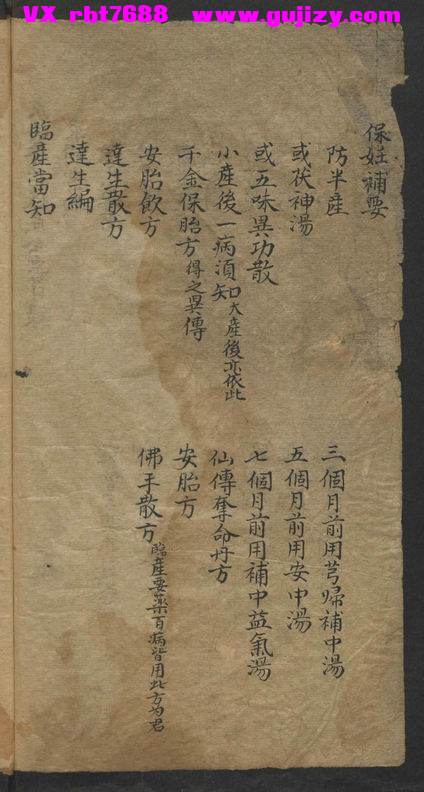 VX rbt7688 www.gujizy.com
保妊補要
防半産
三個月前用芎歸補中湯
或茯神湯
五個月前用安中湯
或五味異功散
七個月前用補中益氣湯
小産後一病須知大産後亦依此
仙傳奪命丹方
千金保胎方得之異傳
安胎方
安胎飲方
佛手散方臨產要藥百病皆用此方为君
達生散方
達生編
臨產當知